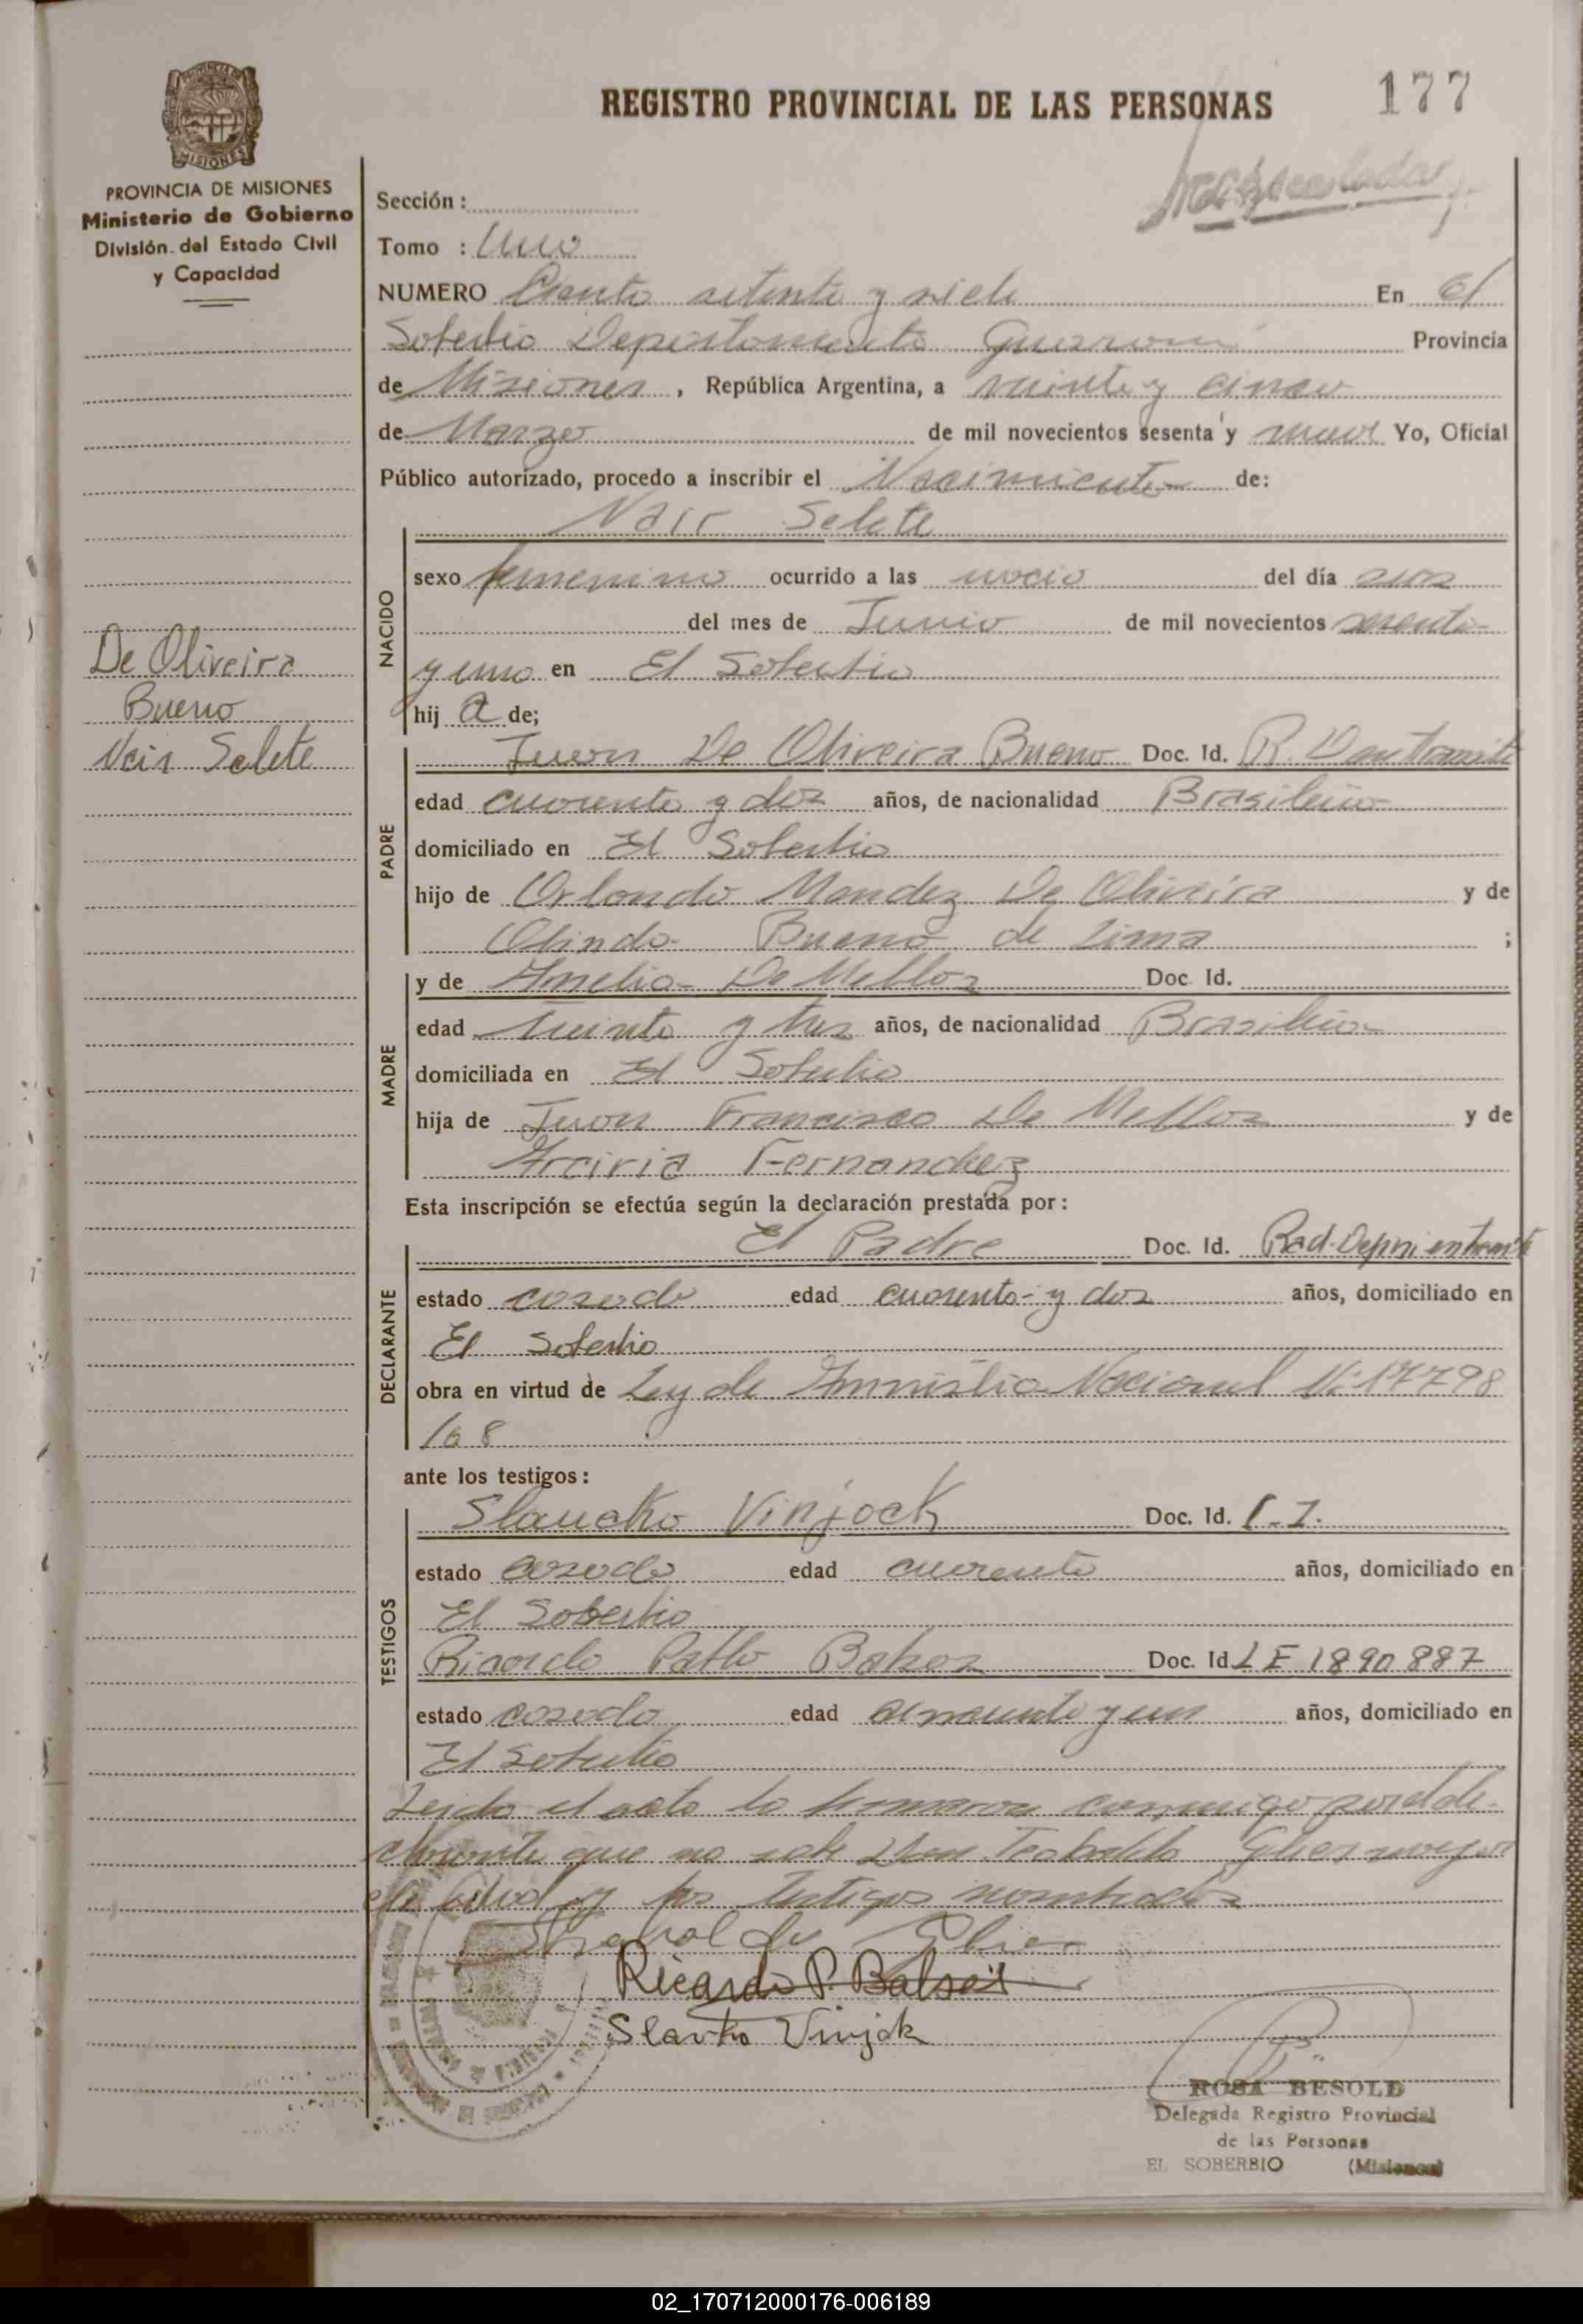 REGISTRO PROVINCIAL DE LAS PERSONAS
177
PROVINCIA DE MISIONES
Ministerio de Gobierno
División del Estado Civil
y Capacidad
De Oliveira
Bueno
Nair Selete
Sección :
Tomo : Uno
NUMERO Ciento setenta y siete En El
Soberbio Departamento Guarani Provincia
de Misiones, República Argentina, a veinte y cinco
de Marzo de mil novecientos sesenta y nueve Yo, Oficial
Público autorizado, procedo a inscribir el Nacimiento de:
Nair Selete
NACIDO
sexo femenino ocurrido a las del día
del mes de Junio de mil novecientos sesenta
y uno en El Soberbio
hij a de;
PADRE
Juan De Oliveira Bueno Doc. Id. R.
edad cuarenta y dos años, de nacionalidad Brasileño
domiciliado en El Soberbio
hijo de Orlando Mandez De Oliveira y de
Olinda Bueno de Lima ;
MADRE
y de Amelia De Mellos Doc. Id.
edad treinta y tres años, de nacionalidad Brasileña
domiciliada en El Soberbio
hija de Juan Francisco De Mellos y de
Fernandez
Esta inscripción se efectúa según la declaración prestada por:
DECLARANTE
El Padre Doc. Id. Rad.
estado casado edad cuarenta y dos años, domiciliado en
El Soberbio
obra en virtud de Ley de Amnistia Nacional Nº 17798
/68
ante los testigos:
TESTIGOS
Slaucko Vinjock Doc. Id. C.I.
estado casado edad cuarenta años, domiciliado en
El Soberbio
Ricardo Pablo Doc. Id L E 1890887
estado casado edad cincuenta y un años, domiciliado en
El Soberbio
Leido el acta la firmaron conmigo por el de-
clarante que no sabe Don
y los testigos nombrados
Ricardo P.
Slavko Vinjak
ROSA BESOLD
Delegada Registro Provincial
de las Personas
EL SOBERBIO (Misiones)
02_170712000176-006189